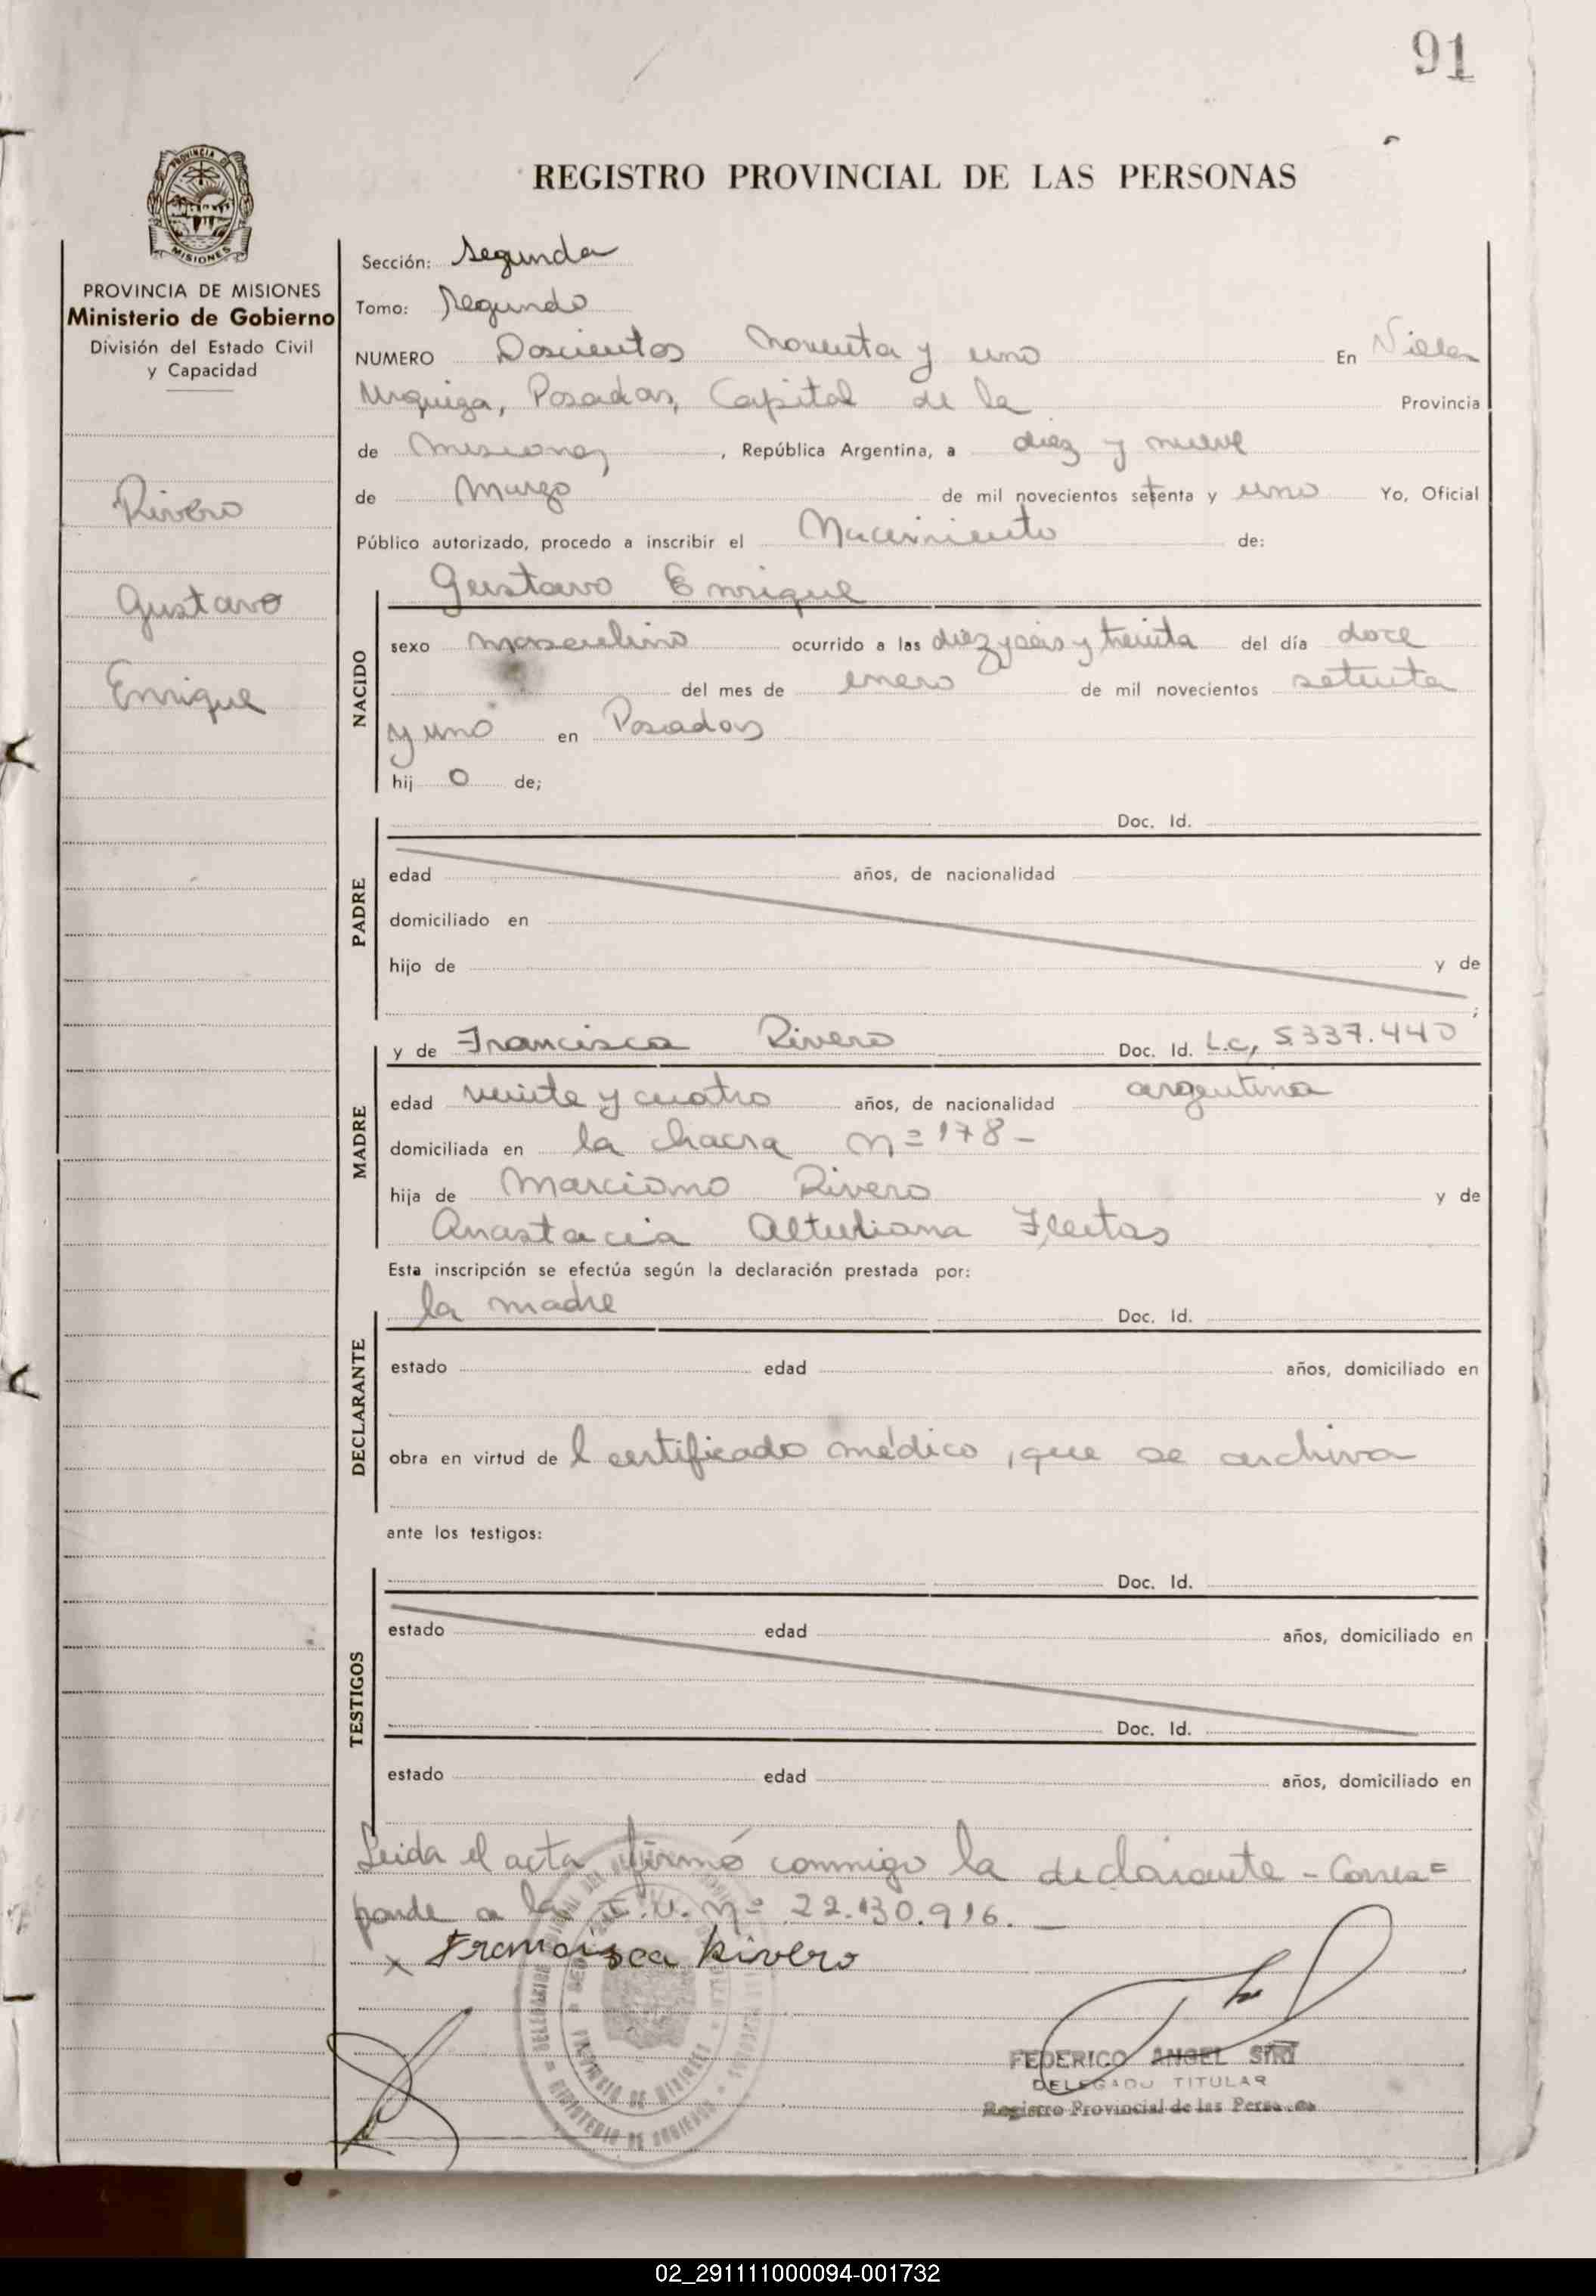 91
REGISTRO PROVINCIAL DE LAS PERSONAS
PROVINCIA DE MISIONES
Ministerio de Gobierno
División del Estado Civil
y Capacidad
Rivero
Gustavo
Enrique
Sección: Segunda
Tomo: Segundo
NUMERO Doscientos noventa y uno En Villa
Urquiza, Posadas, Capital de la Provincia
de Misiones, República Argentina, a diez y nueve
de Marzo de mil novecientos setenta y uno Yo, Oficial
Público autorizado, procedo a inscribir el Nacimiento de:
Gustavo Enrique
NACIDO
sexo masculino ocurrido a las diez y seis y treinta del día doce
del mes de enero de mil novecientos setenta
y uno en Posadas
hij o de;
PADRE
Doc. Id.
edad años, de nacionalidad
domiciliado en
hijo de y de
;
MADRE
y de Francisca Rivero Doc. Id. L.C, 5.337.440
edad veinte y cuatro años, de nacionalidad argentina
domiciliada en la chacra nº 178-
hija de Marciano Rivero y de
Anastacia Fleitas
Esta inscripción se efectúa según la declaración prestada por:
DECLARANTE
la madre Doc. Id.
estado edad años, domiciliado en
obra en virtud de l certificado médico, que se archiva
ante los testigos:
TESTIGOS
Doc. Id.
estado edad años, domiciliado en
Doc. Id.
estado edad años, domiciliado en
Leida el acta firmó conmigo la declarante - Corres=
ponde a la nº 22.130.916.
x Francisca Rivero
FEDERICO ANGEL
DELEGADO TITULAR
Registro Provincial de las Personas
PROVINCIA DE MISIONES
MINISTERIO DE GOBIERNO
02_291111000094-001732